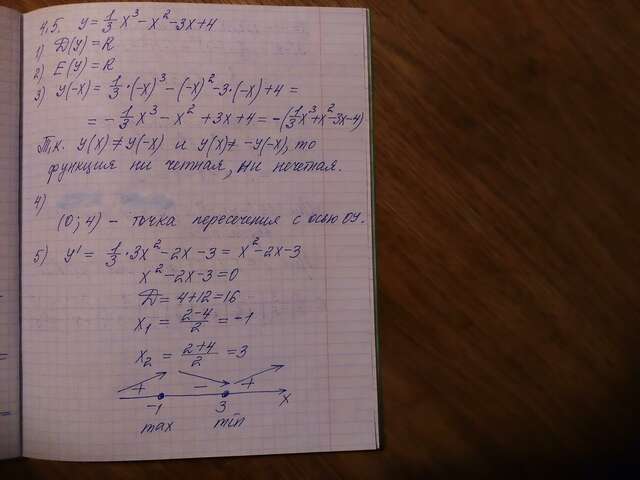 4.5. y = 1/3 x³ - x² - 3x + 4
1) D(y) = R
2) E(y) = R
3) y(-x) = 1/3 · (-x)³ - (-x)² - 3 · (-x) + 4 =
= - 1/3 x³ - x² + 3x + 4 = -(1/3 x³ + x² - 3x - 4)
Т.к. y(x) ≠ y(-x) и y(x) ≠ -y(-x), то
функция ни четная, ни нечетная.
4)
(0; 4) - точка пересечения с осью OY.
5) y' = 1/3 · 3x² - 2x - 3 = x² - 2x - 3
x² - 2x - 3 = 0
D = 4 + 12 = 16
x₁ = (2-4)/2 = -1
x₂ = (2+4)/2 = 3
+ - +
-1 3 x
max min